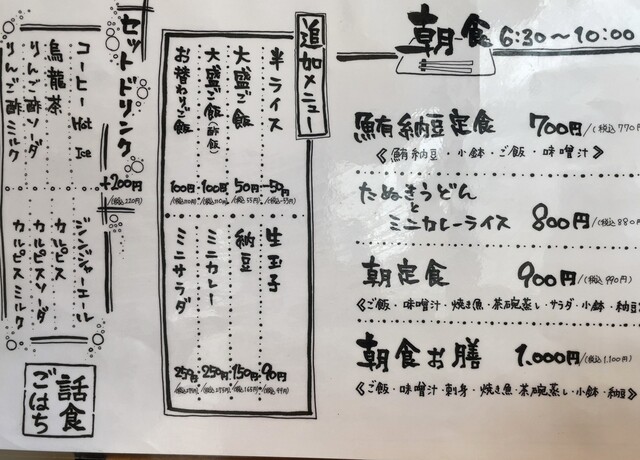 朝食 6:30〜10:00
鮪納豆定食 700円/(税込770円
《鮪納豆・小鉢・ご飯・味噌汁》
たぬきうどん
と
ミニカレーライス 800円/(税込880
朝定食 900円/(税込990円)
《ご飯・味噌汁・焼き魚・茶碗蒸し・サラダ・小鉢・納豆
朝食お膳 1,000円/(税込1,100円)
《ご飯・味噌汁・刺身・焼き魚・茶碗蒸し・小鉢・納豆》
追加メニュー
半ライス -50円/(税込-55円)
大盛ご飯 50円/(税込55円)
大盛ご飯(酢飯) 100円/(税込110円)
お替わりご飯 100円/(税込110円)
生玉子 90円/(税込99円)
納豆 150円/(税込165円)
ミニカレー 250円/(税込275円)
ミニサラダ 250円/(税込275円)
セットドリンク +200円/(税込220円)
コーヒー Hot Ice
烏龍茶
りんご酢ソーダ
りんご酢ミルク
ジンジャーエール
カルピス
カルピスソーダ
カルピスミルク
話食
ごはち